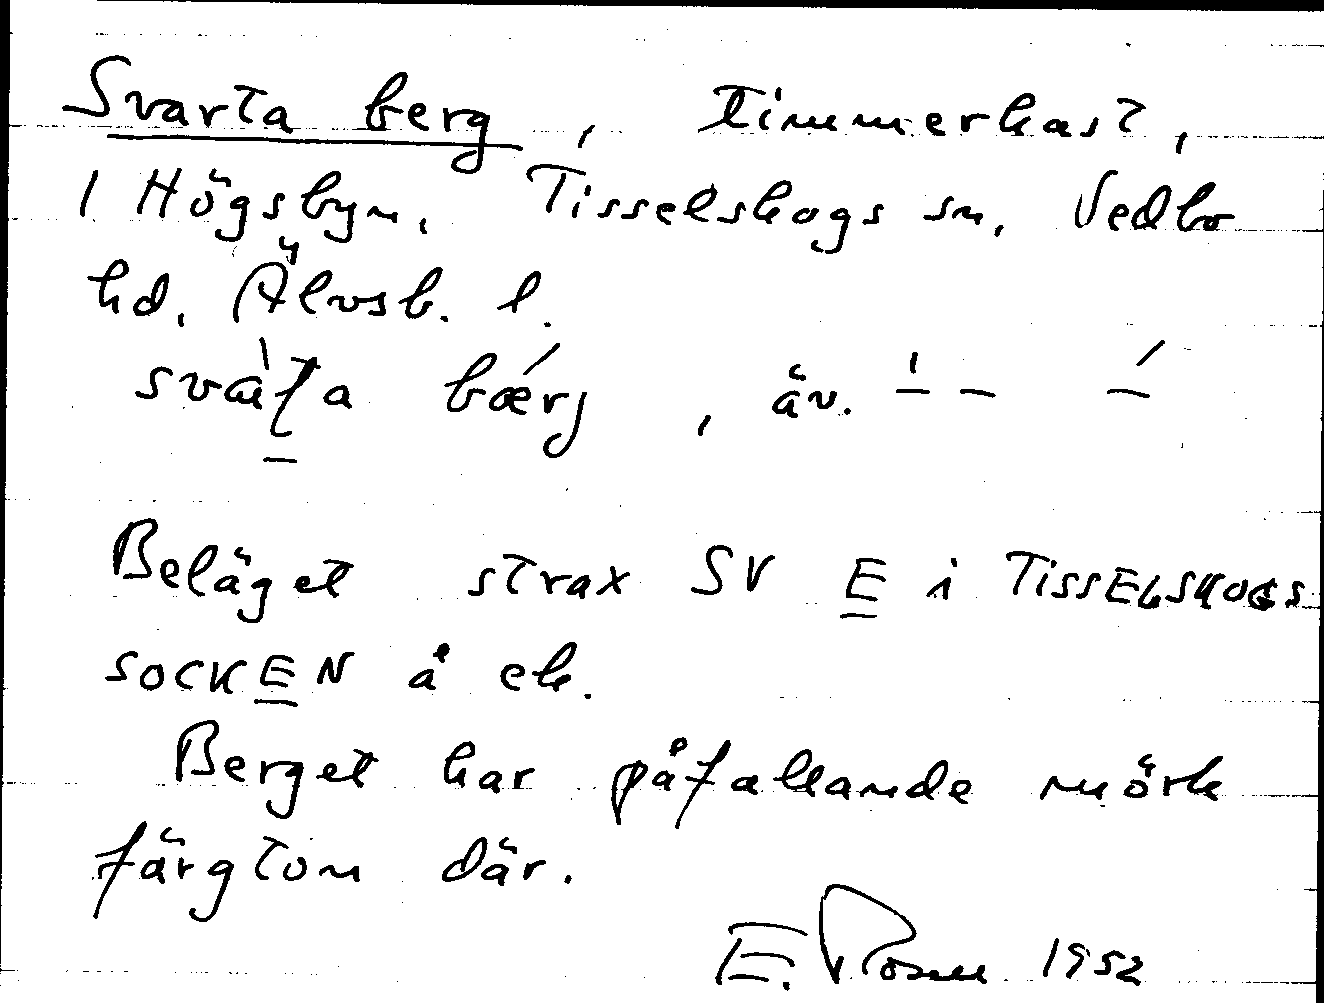 Svarta berg, timmerkast,
i Högsbyn, Tisselskogs sn, Vedbo
hd, Älvsb. l.
svàʈa bǽrj, äv.
Beläget strax SV E i TISSELSKOGS
SOCKEN å ek.
Berget har påfallande mörk
färgton där.
E. 1952